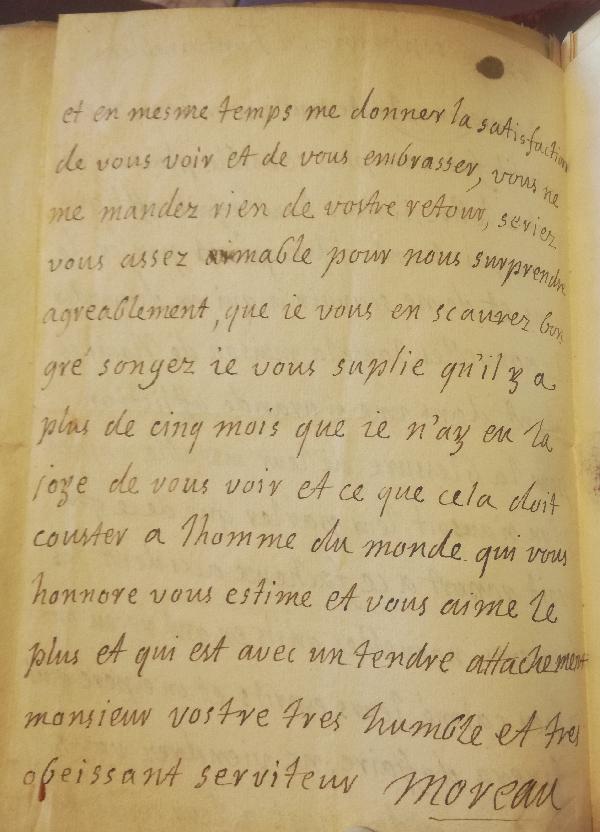 et en mesme temps me donner la satisfaction
de vous voir et de vous embrasser, vous ne
me mandez rien de vostre retour, seriez
vous assez aimable pour nous surprendre
agreablement, que ie vous en scaurez bon
gré songez ie vous suplie qu'il y a
plus de cinq mois que ie n'ay eu la
joye de vous voir et ce que cela doit
couster a lhomme du monde qui vous
honnore vous estime et vous aime le
plus et qui est avec un tendre attachement
monsieur vostre tres humble et tres
obeissant serviteur Moreau